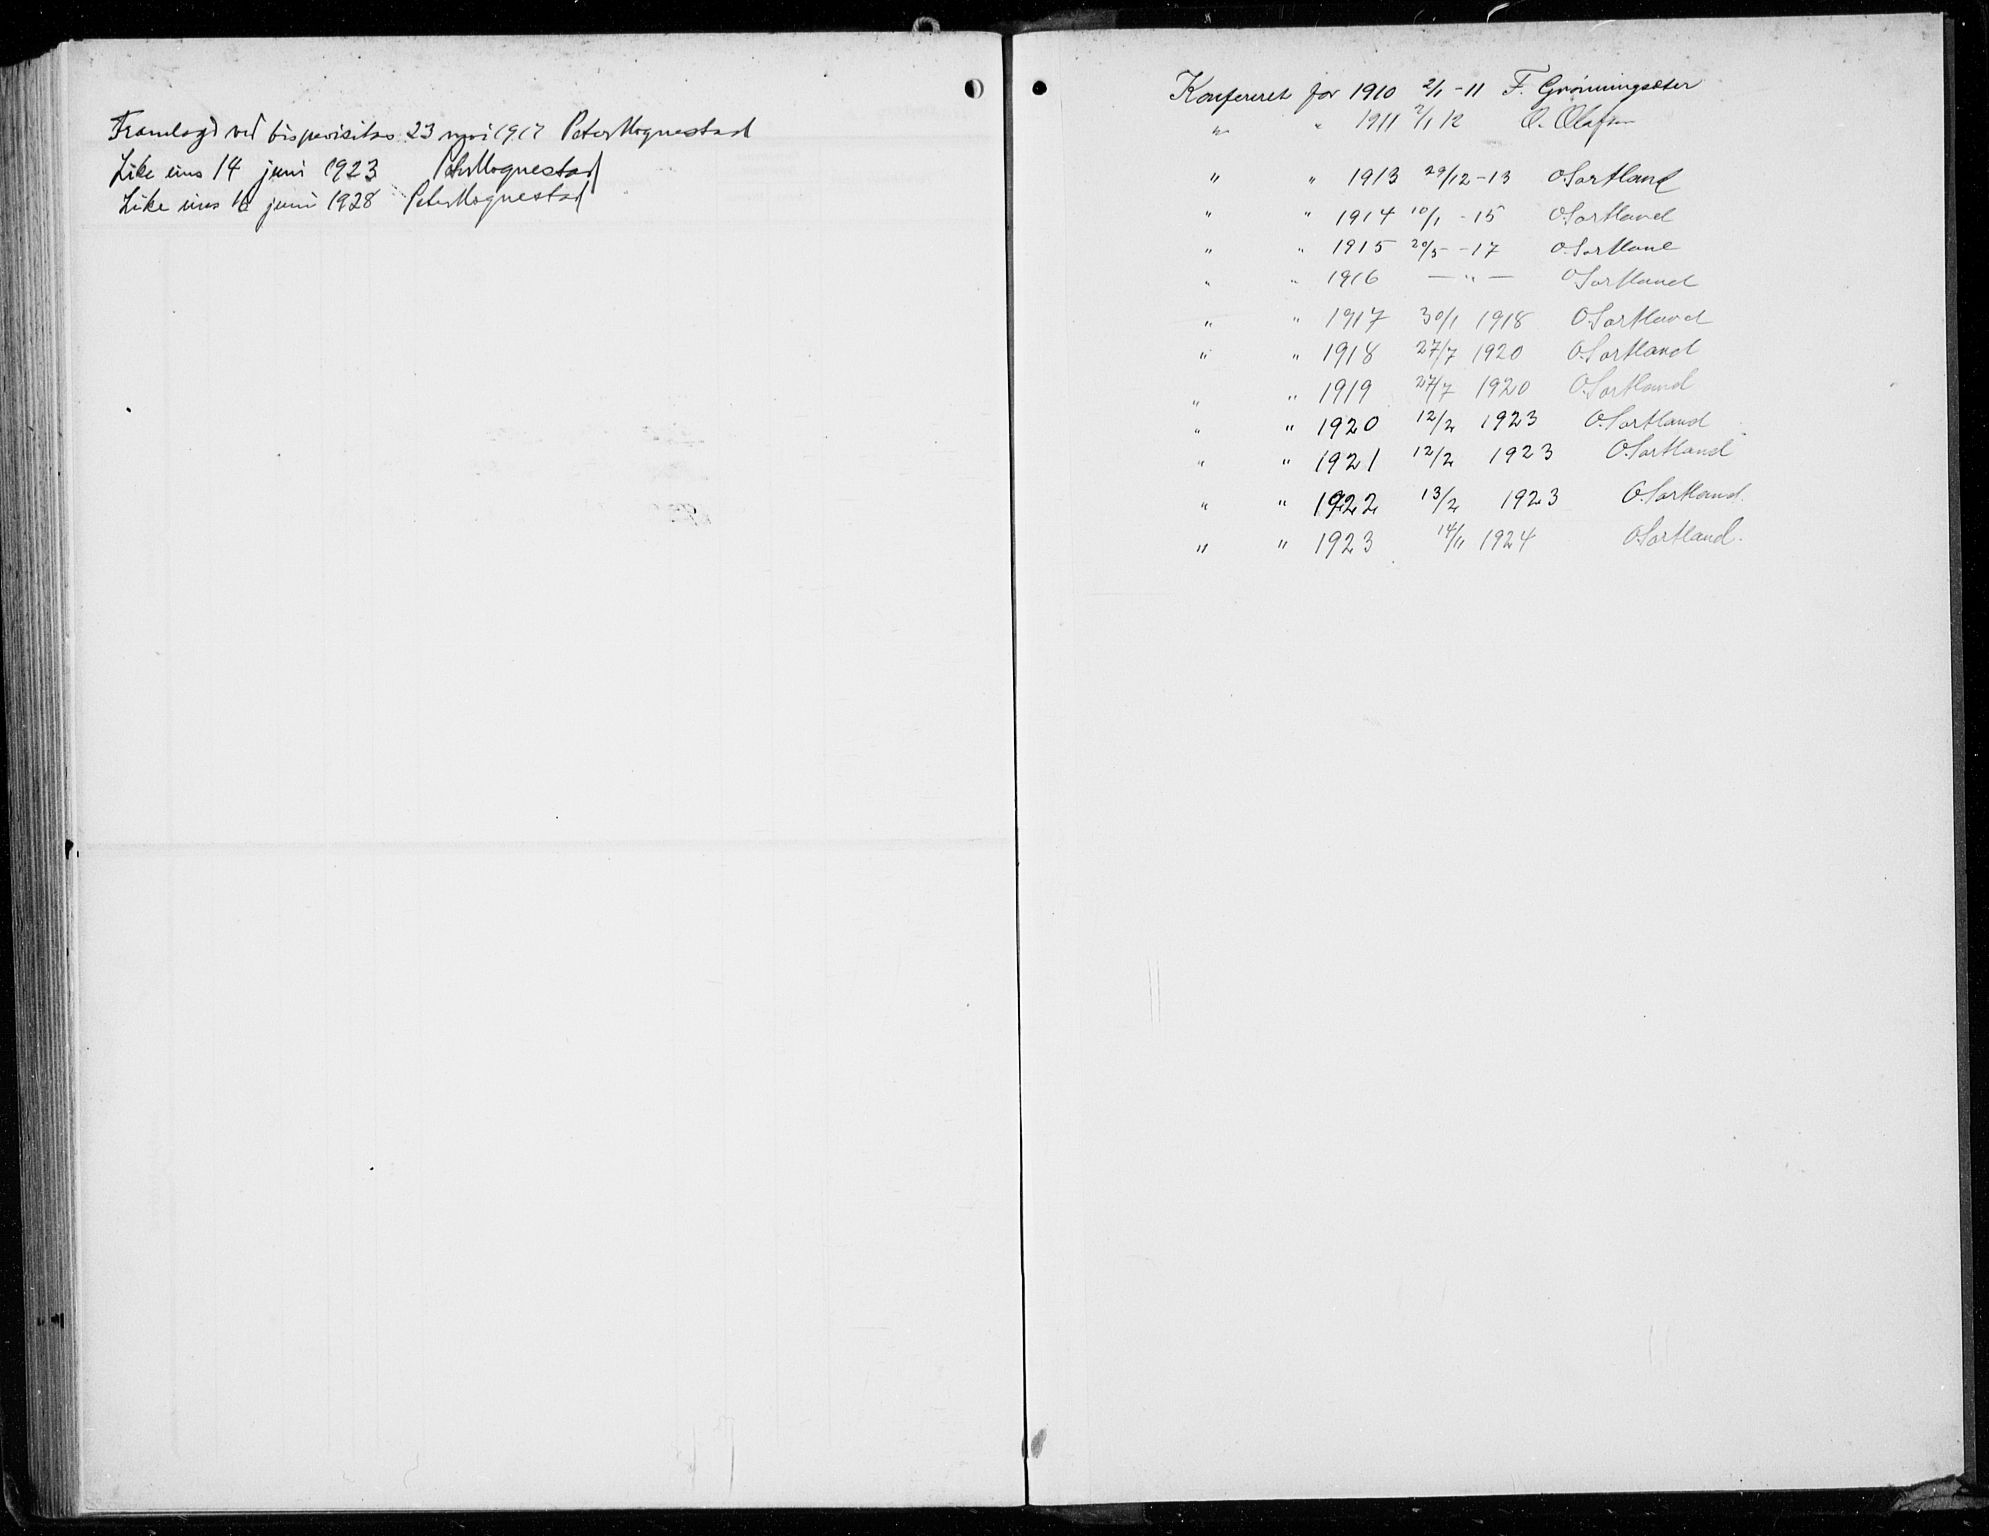 Framlagd ved bispevisitas 23 mai 1917 Peter Hognestad
Like eins 14 juni 1923 Peter Hognestad
Like eins 16 juni 1928 Peter Hognestad
Konfereret for 1910 2/1 - 11 F. Grønningsæter
" " 1911 2/1 12 O. Olafsen
" " 1913 29/12 - 13 O Sortland
" " 1914 10/1 - 15 O Sortland
" " 1915 20/5 - 17 O Sortland
" " 1916 — " — O Sortland
" " 1917 30/1 1918 O Sortland
" " 1918 27/7 1920 O Sortland
" " 1919 27/7 1920 O. Sortland
" " 1920 12/2 1923 O. Sortland
" " 1921 12/2 1923 O. Sortland
" " 1922 13/2 1923 O. Sortland.
" " 1923 14/11 1924 O Sortland.